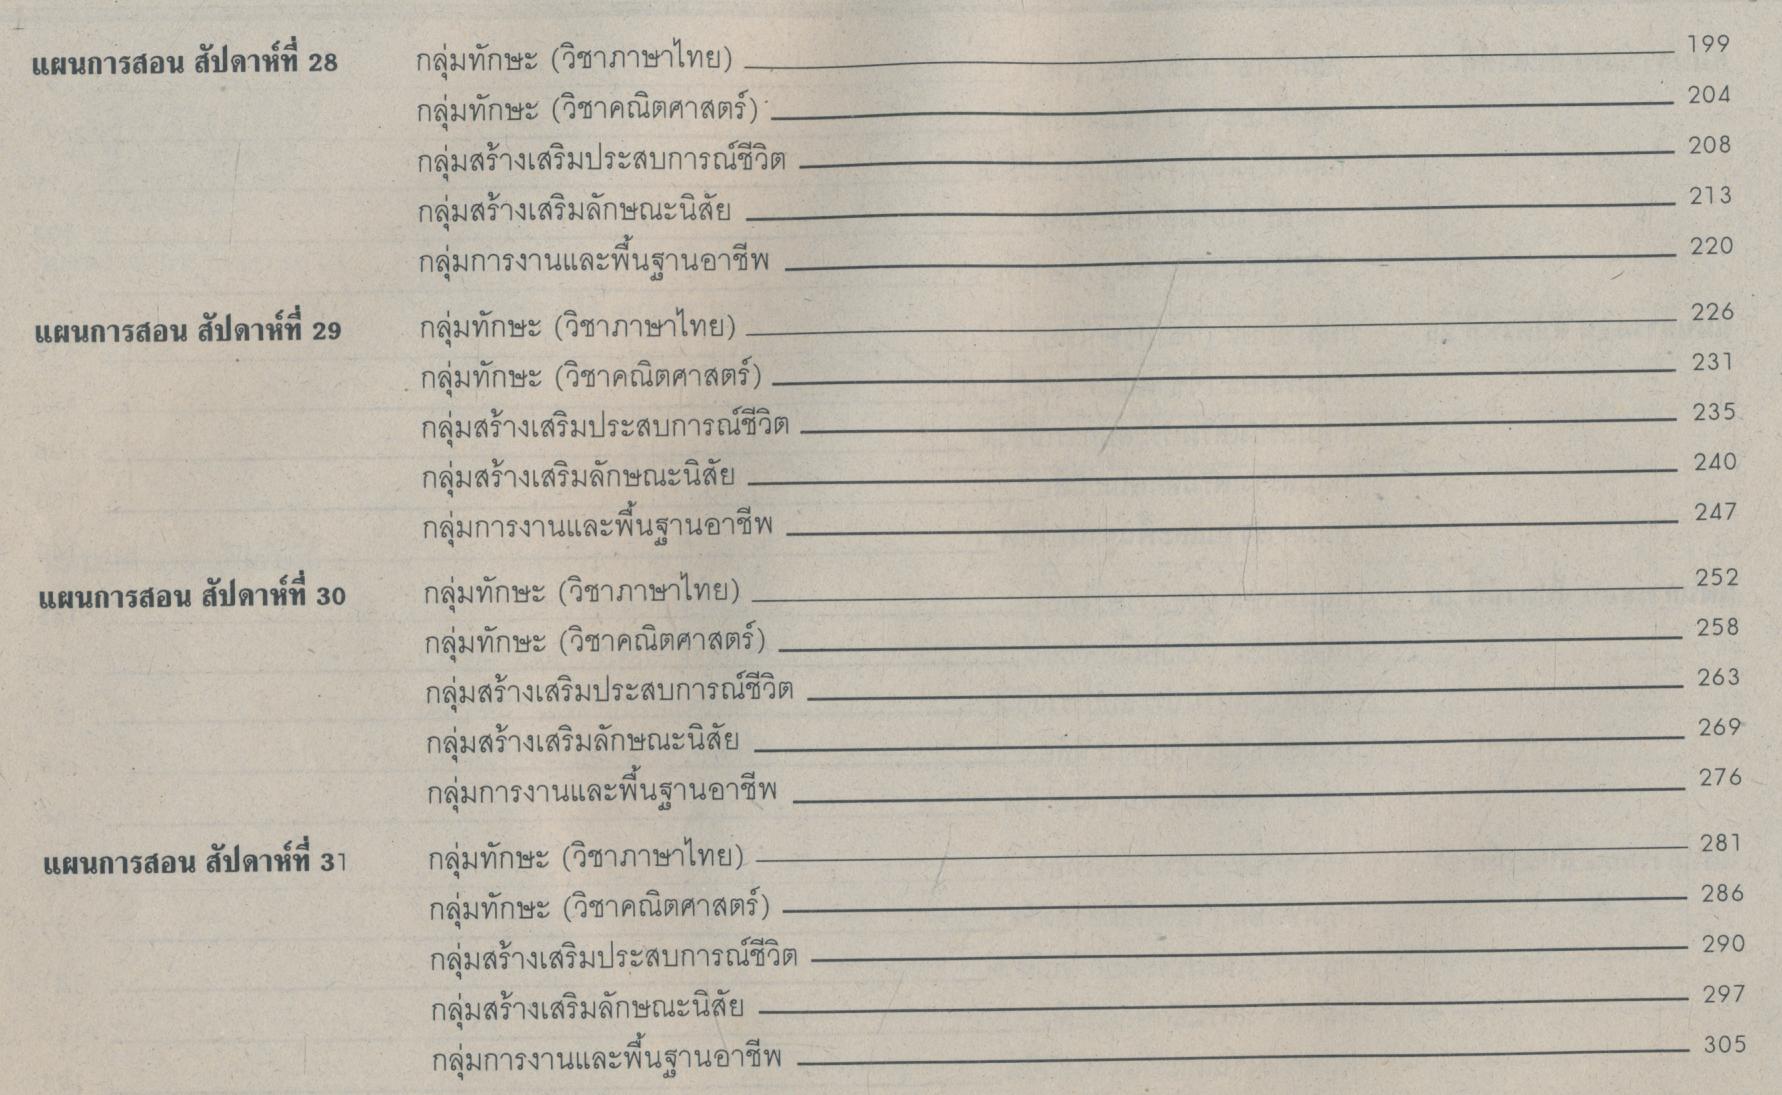 แผนการสอน สัปดาห์ที่ 28 กลุ่มทักษะ (วิชาภาษาไทย) 199
กลุ่มทักษะ (วิชาคณิตศาสตร์) 204
กลุ่มสร้างเสริมประสบการณ์ชีวิต 208
กลุ่มสร้างเสริมลักษณะนิสัย 213
กลุ่มการงานและพื้นฐานอาชีพ 220
แผนการสอน สัปดาห์ที่ 29 กลุ่มทักษะ (วิชาภาษาไทย) 226
กลุ่มทักษะ (วิชาคณิตศาสตร์) 231
กลุ่มสร้างเสริมประสบการณ์ชีวิต 235
กลุ่มสร้างเสริมลักษณะนิสัย 240
กลุ่มการงานและพื้นฐานอาชีพ 247
แผนการสอน สัปดาห์ที่ 30 กลุ่มทักษะ (วิชาภาษาไทย) 252
กลุ่มทักษะ (วิชาคณิตศาสตร์) 258
กลุ่มสร้างเสริมประสบการณ์ชีวิต 263
กลุ่มสร้างเสริมลักษณะนิสัย 269
กลุ่มการงานและพื้นฐานอาชีพ 276
แผนการสอน สัปดาห์ที่ 31 กลุ่มทักษะ (วิชาภาษาไทย) 281
กลุ่มทักษะ (วิชาคณิตศาสตร์) 286
กลุ่มสร้างเสริมประสบการณ์ชีวิต 290
กลุ่มสร้างเสริมลักษณะนิสัย 297
กลุ่มการงานและพื้นฐานอาชีพ 305